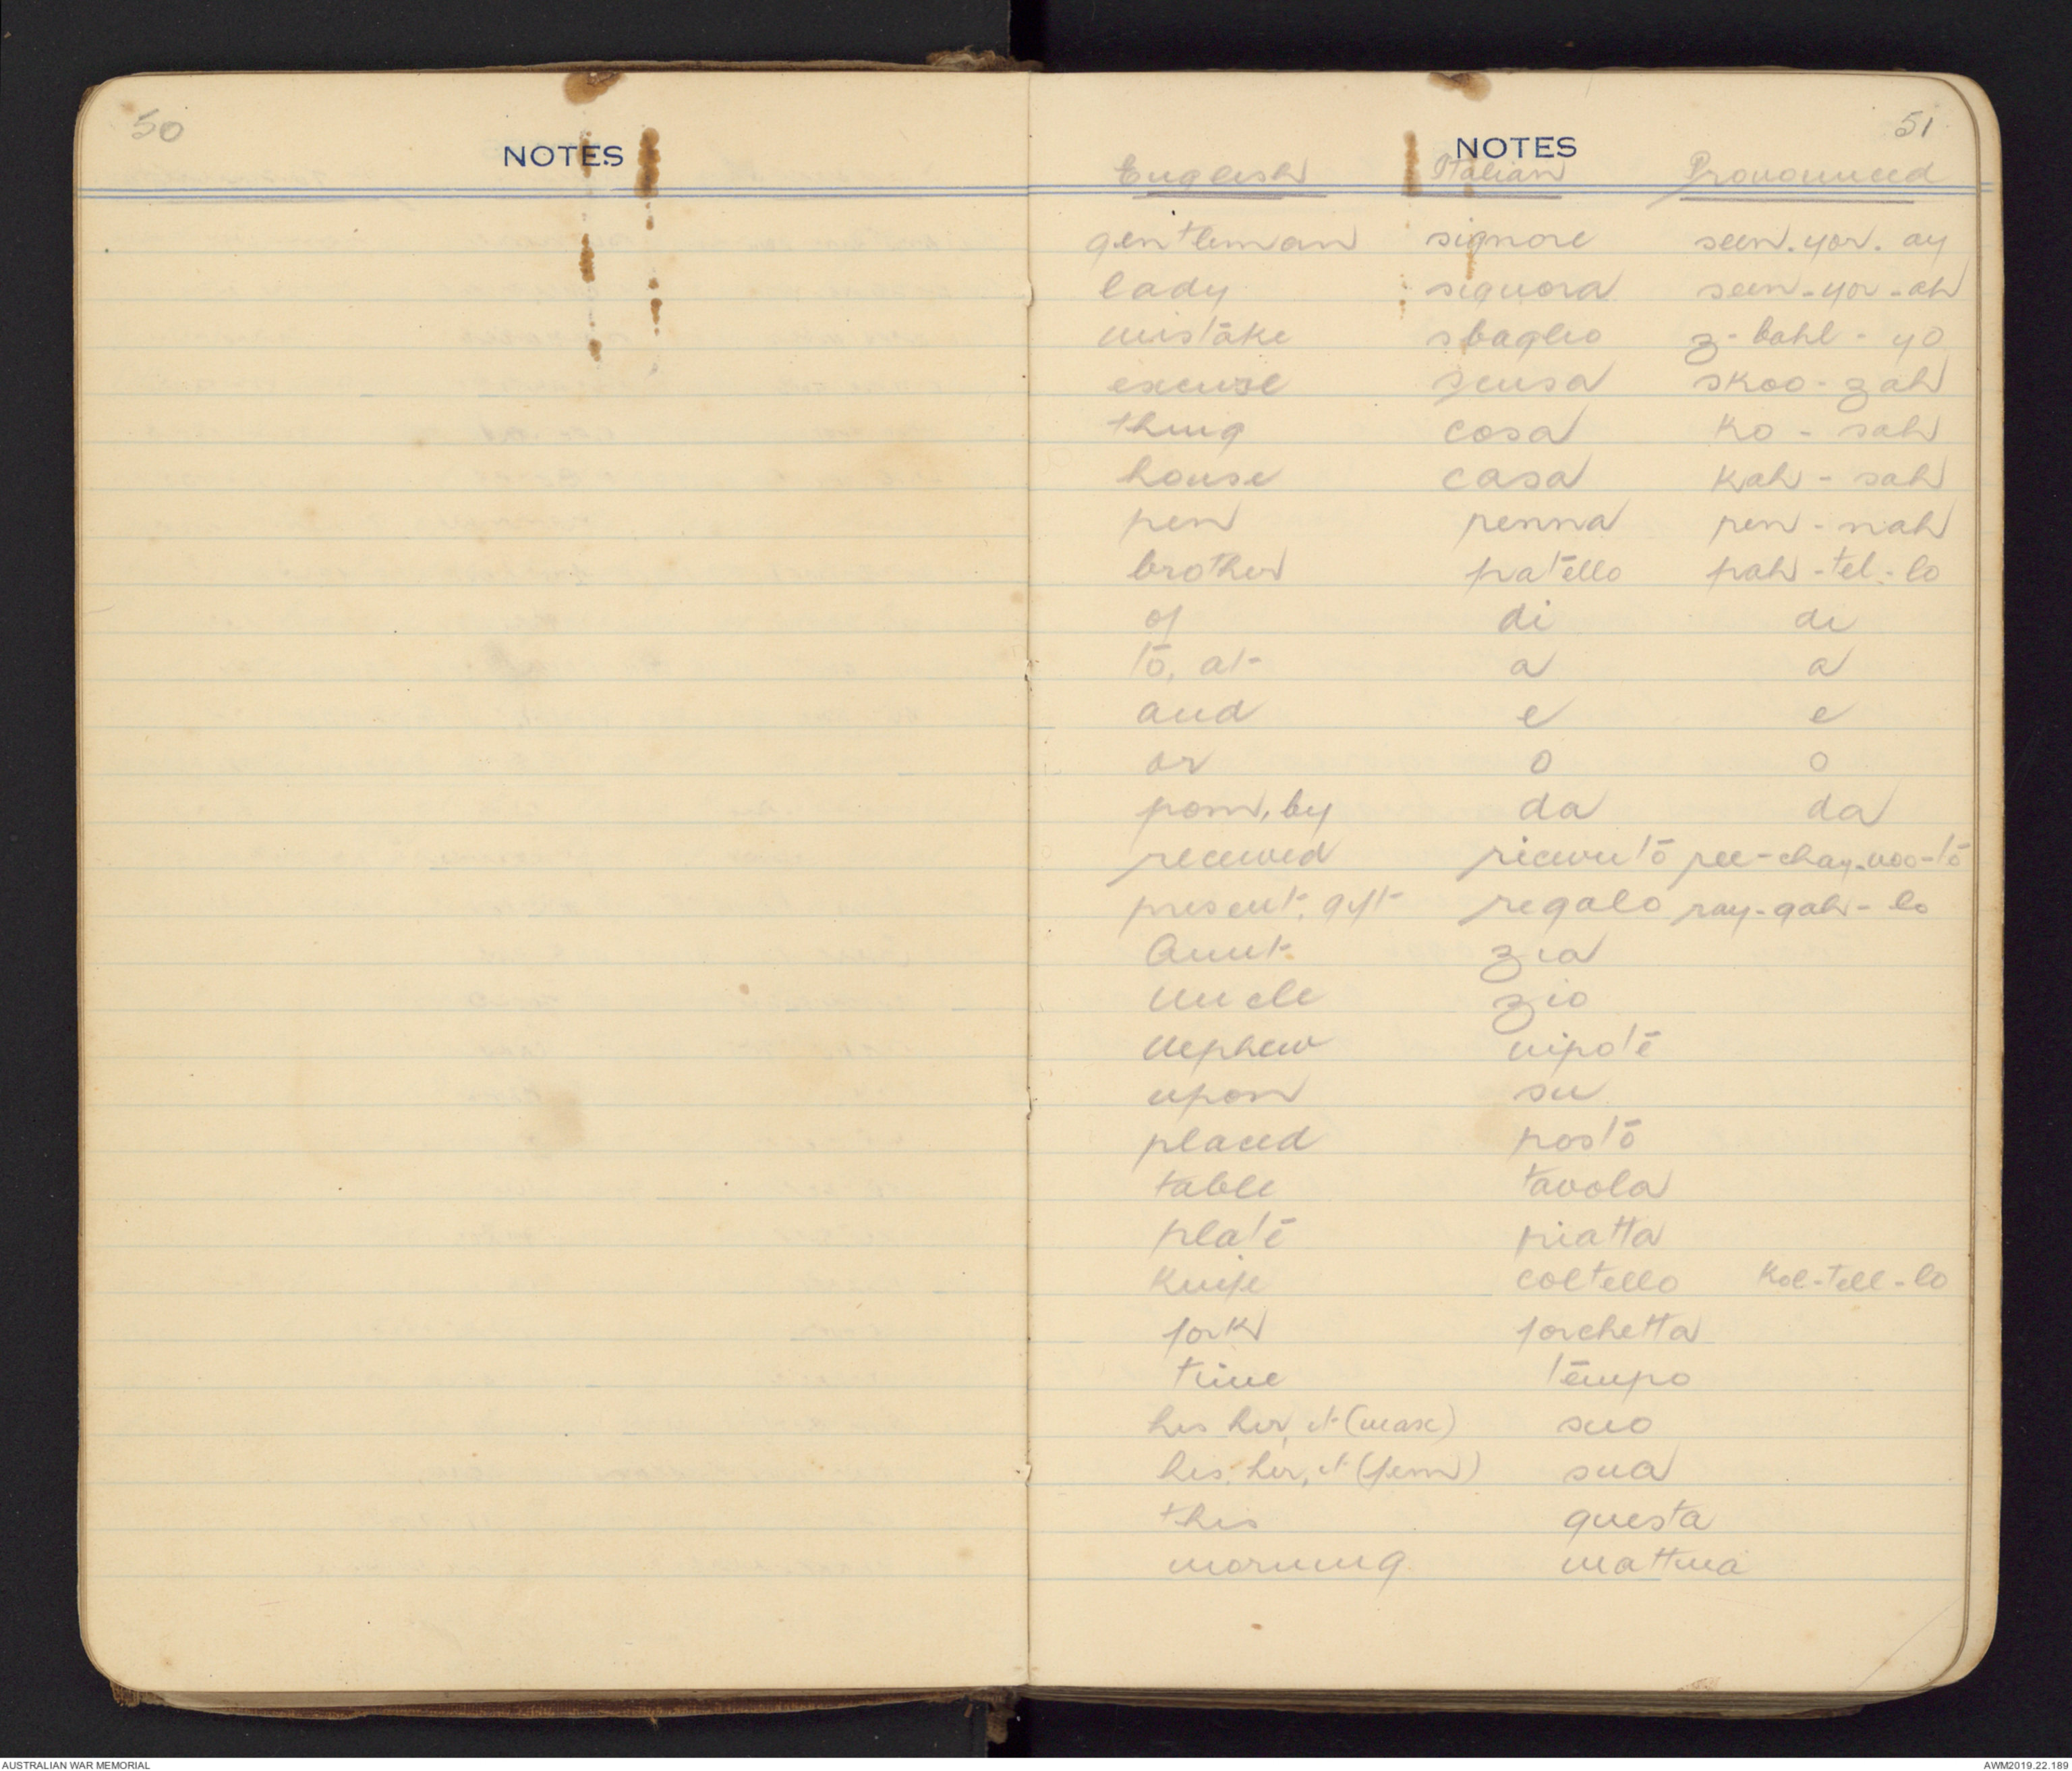 50
NOTES
51
NOTES
English Italian Pronounced
gentleman signore seen-yor-ay
lady signora seen-yor-ah
mistake sbaglio z-bahl-yo
excuse scusa skoo-zah
thing cosa ko-sah
house casa kah-sah
pen penna pen-nah
brother fratello frah-tel-lo
of di di
to, at a a
and e e
or o o
from, by da da
received ricevuto ree-chay-voo-to
present, gift regalo ray-gah-lo
Aunt zia
Uncle zio
Nephew nipote
upon su
placed posto
table tavola
plate piatta
knife coltello kol-tell-lo
fork forchetta
time tempo
his her, it (masc) suo
his, her, it (fem) sua
this questa
morning mattina
AUSTRALIAN WAR MEMORIAL
AWM2019.22.189